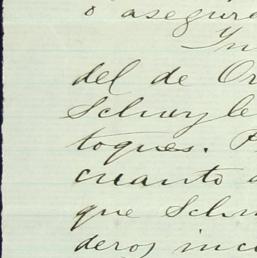 o asegura
In
del de Or
Schuyle
toques. P
cuanto a
que Schu
deros inc